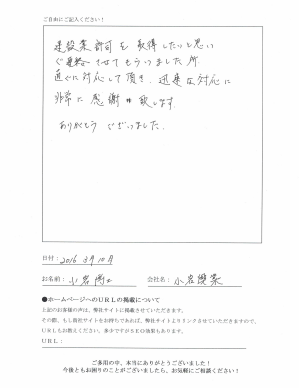 ご自由にご記入ください！
建設業許可を取得したいと思い
ご連絡させてもらいました所
直ぐに対応して頂き、迅速な対応に
非常に感謝致します。
ありがとうございました。
日付： 2016 3月10日
お名前： 小岩 会社名： 小岩
●ホームページへのURLの掲載について
上記のお客様の声は、弊社サイトに掲載させていただきます。
その際、もし御社サイトをお持ちであれば、弊社サイトよりリンクさせていただきますので、
URLもお教えください。多少ですがSEO効果もあります。
URL：
ご多用の中、本当にありがとうございました！
今後ともお困りのことがございましたら、お気軽にご相談ください！